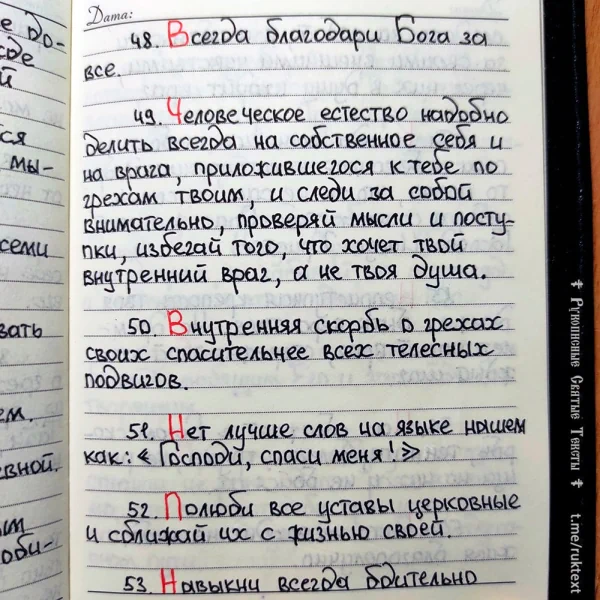 е до-
сде
й
тся
мы-
семи
вать
ем.
евной.
ым
оби-
Дата:
48. Всегда благодари Бога за
все.
49. Человеческое естество надобно
делить всегда на собственное себя и
на врага, приложившегося к тебе по
грехам твоим, и следи за собой
внимательно, проверяй мысли и посту-
пки, избегай того, что хочет твой
внутренний враг, а не твоя душа.
50. Внутренняя скорбь о грехах
своих спасительнее всех телесных
подвигов.
51. Нет лучше слов на языке нашем
как: «Господи, спаси меня!»
52. Полюби все уставы церковные
и сближай их с жизнью своей.
53. Навыкни всегда бдительно
Рукописные Святые Тексты
t.me/ruktext